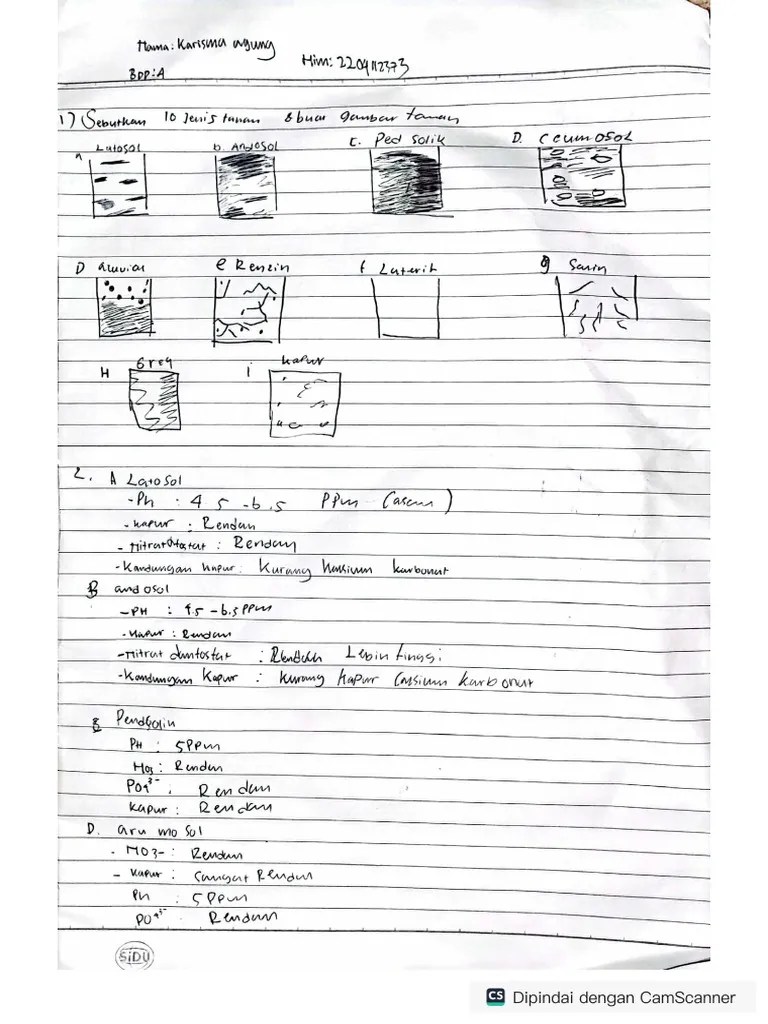 Nama: Karisma agung
Nim: 2204112373
BDP: A
1) Sebutkan 10 Jenis tanah & buat gambar tanah
a Latosol b. Andosol c. Ped Solik D. Ceumosol
D aluvial e Renzin f Laterit g Salin
H Grey i kapur
2. A Latosol
-Ph : 4 5 -6.5 PPm (asam)
-kapur : Rendah
- Nitrat : Rendah
-Kandungan kapur: Kurang kalsium karbonat
B andosol
-PH : 4.5 -6.5 PPm
-kapur : Rendah
-Nitrat dan fosfat : Lebih tinggi
-Kandungan Kapur : Kurang kapur karbonat
PH : 5 PPm
No3 : Rendah
PO4³⁻ : Rendah
Kapur : Rendah
D. aru mo sol
- NO3- : Rendah
- Kapur : Sangat Rendah
Ph : 5 PPm
PO4³⁻ Rendah
SiDU
CS Dipindai dengan CamScanner